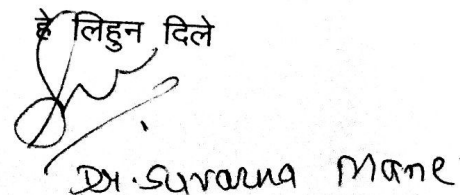 हे लिहुन दिले
Dr. Suvarna Mane